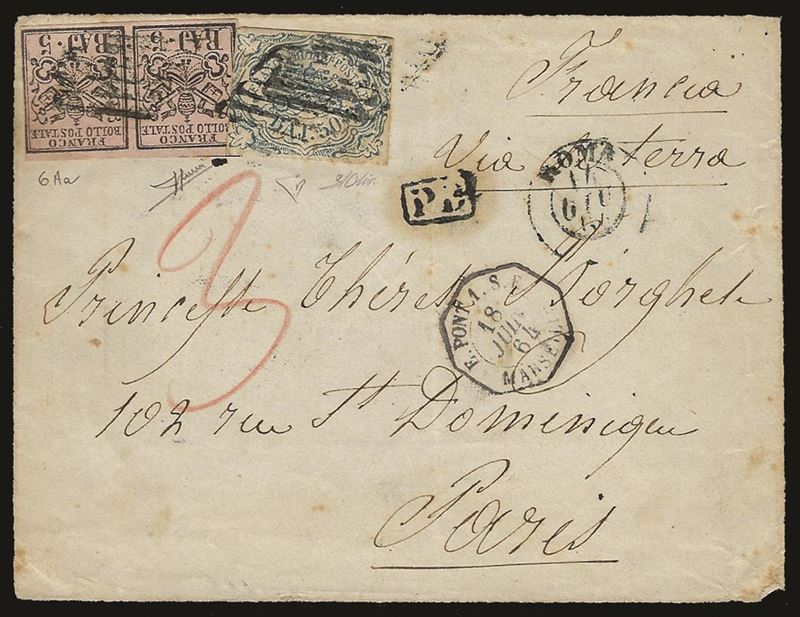 BAJ·5
FRANCO
BOLLO POSTALE
BAJ·5
FRANCO
BOLLO POSTALE
BAJ. 50
6Aa
Francia
Via di terra
ROMA
GIU
P.D.
E. PONT. 1. S. E.
18
JUIN
64
MARSEILLE
3
Princesse Thérèse Borghese
102 rue St Dominique
Paris